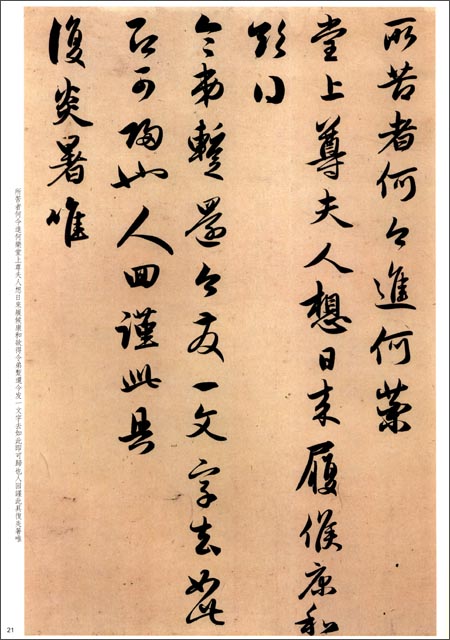 所苦者何今進何藥
堂上尊夫人想日來履候康和
欲得
令弟暫還今发一文字去如此
即可歸也人回謹此具
復炎暑唯
所苦者何今進何藥堂上尊夫人想日來履候康和欲得令弟暫還今发一文字去如此即可歸也人回謹此具復炎暑唯
21